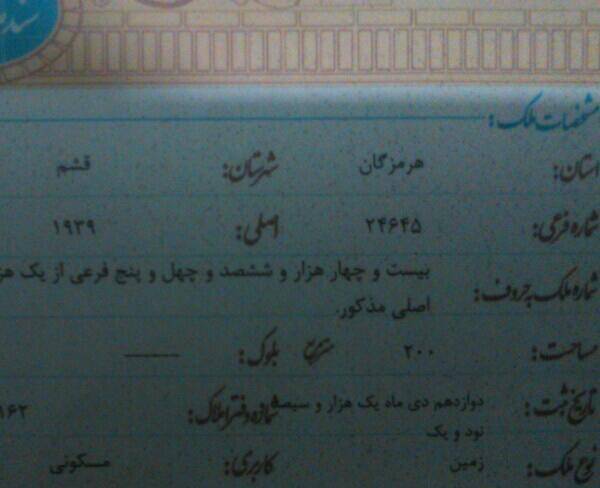 مشخصات ملک:
استان: هرمزگان شهرستان: قشم
شماره فرعی: ۲۴۶۴۵ اصلی: ۱۹۳۹
شماره ملک به حروف: بیست و چهار هزار و ششصد و چهل و پنج فرعی از یک
اصلی مذکور.
مساحت: ۲۰۰ مترمربع بلوک: ———
تاریخ ثبت: دوازدهم دی ماه یک هزار و سیصد شماره دفتر املاک: ۱۶۲
نود و یک
نوع ملک: زمین کاربری: مسکونی